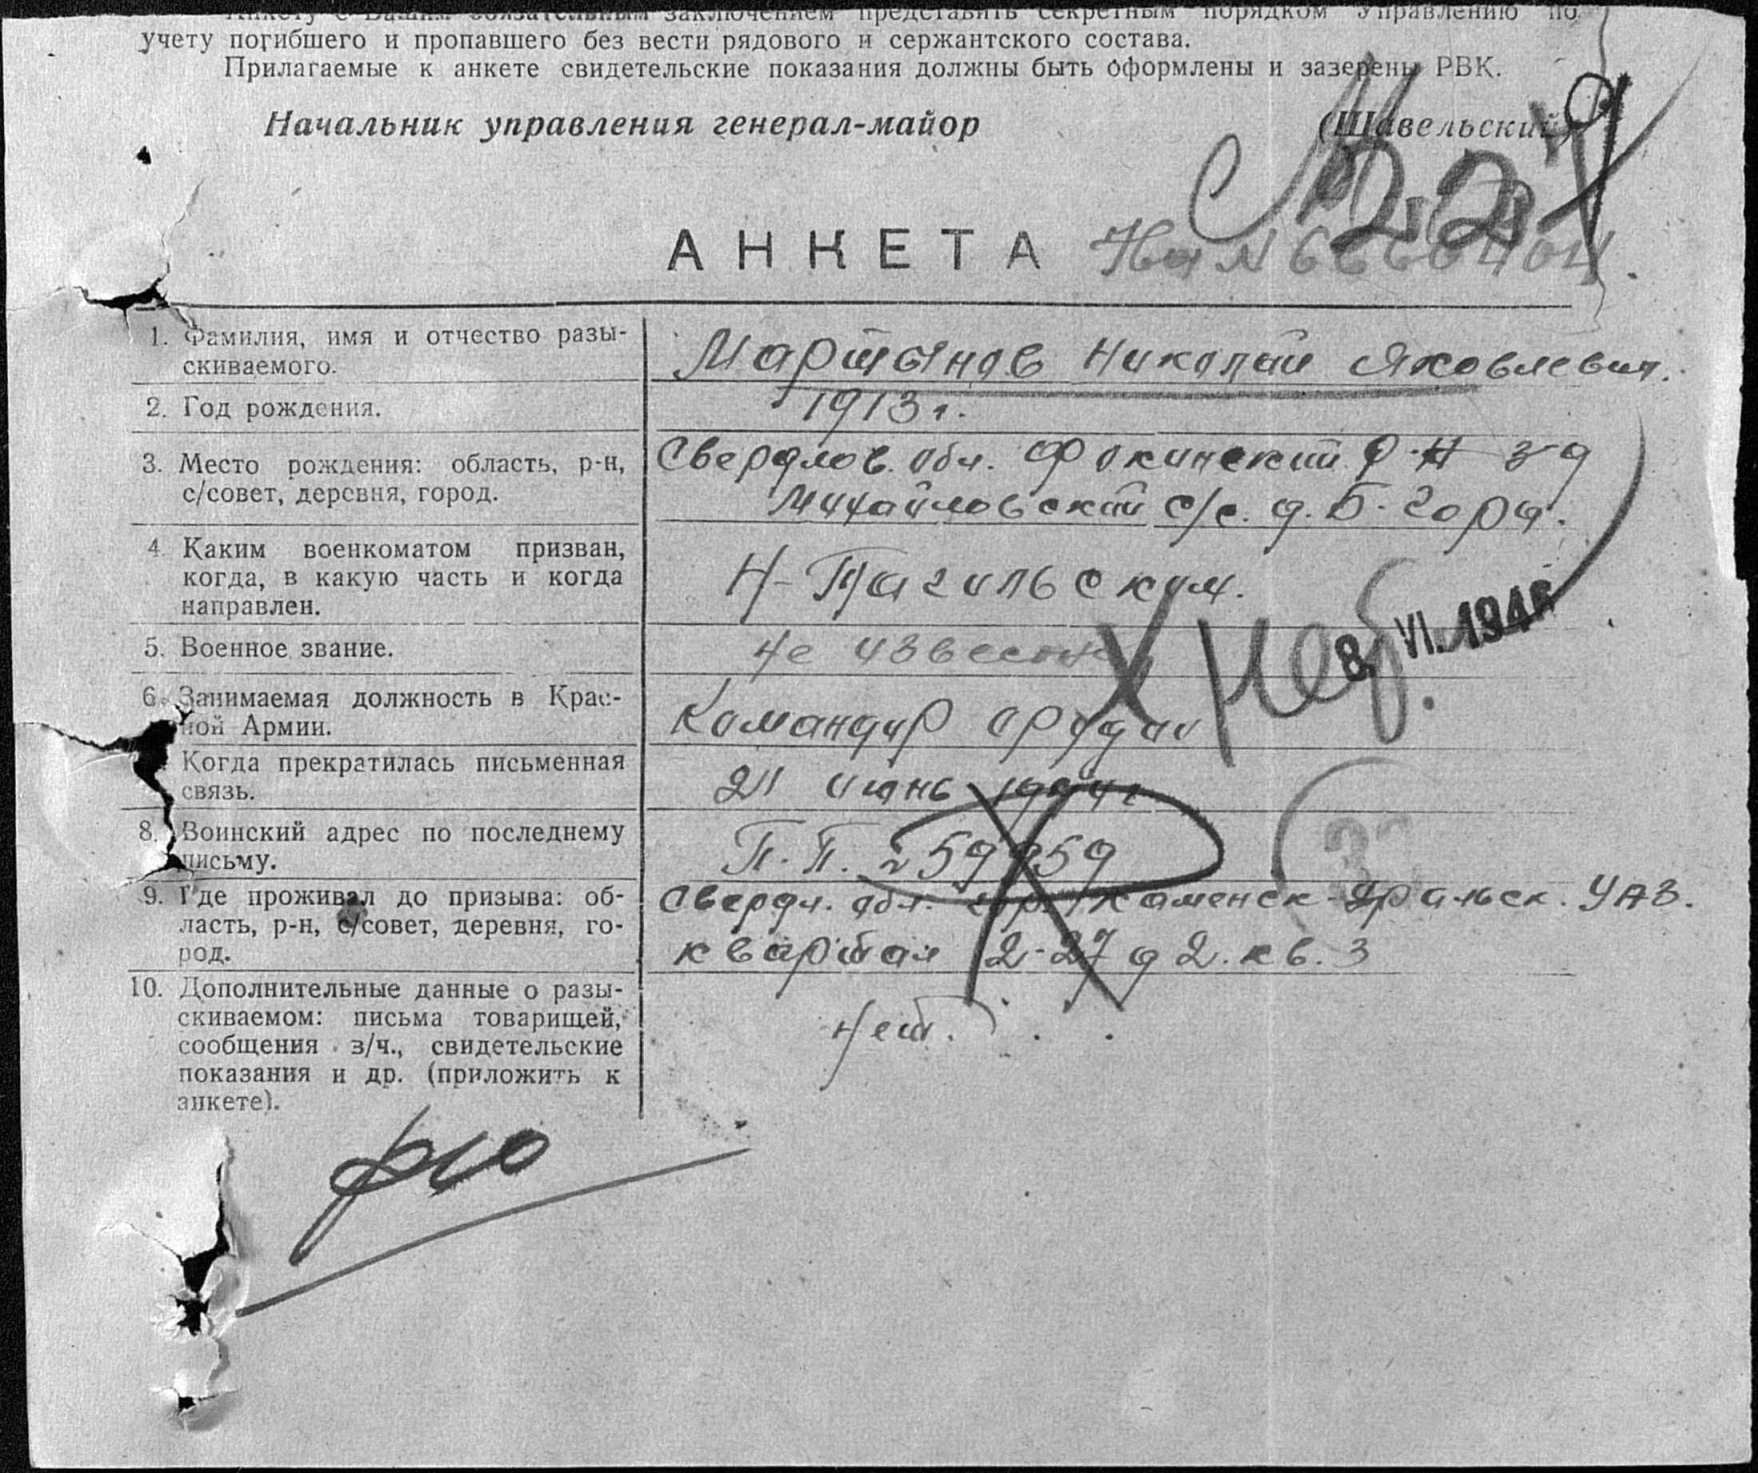 Анкету с Вашим обязательным заключением представить секретным порядком Управлению по
учету погибшего и пропавшего без вести рядового и сержантского состава.
Прилагаемые к анкете свидетельские показания должны быть оформлены и заверены РВК.
Начальник управления генерал-майор (Шавельский)
АНКЕТА
1. Фамилия, имя и отчество разы-
скиваемого.
Мартынов Николай Яковлевич.
2. Год рождения.
1913 г.
3. Место рождения: область, р-н,
с/совет, деревня, город.
Свердлов. обл. Фокинский р-н з-д
Михайловский с/с. д. Б-Гора.
4. Каким военкоматом призван,
когда, в какую часть и когда
направлен.
Н-Тагильским.
8. VI. 1946
5. Военное звание.
не известно
6. Занимаемая должность в Крас-
ной Армии.
Командир орудия
Когда прекратилась письменная
связь.
21 июнь 1944 г
8. Воинский адрес по последнему
письму.
П.П. 59959
9. Где проживал до призыва: об-
ласть, р-н, с/совет, деревня, го-
род.
Свердл. обл. гор. Каменск-Уральск. УАЗ.
квартал 2-27 д 2. кв. 3
10. Дополнительные данные о разы-
скиваемом: письма товарищей,
сообщения з/ч., свидетельские
показания и др. (приложить к
анкете).
нет.